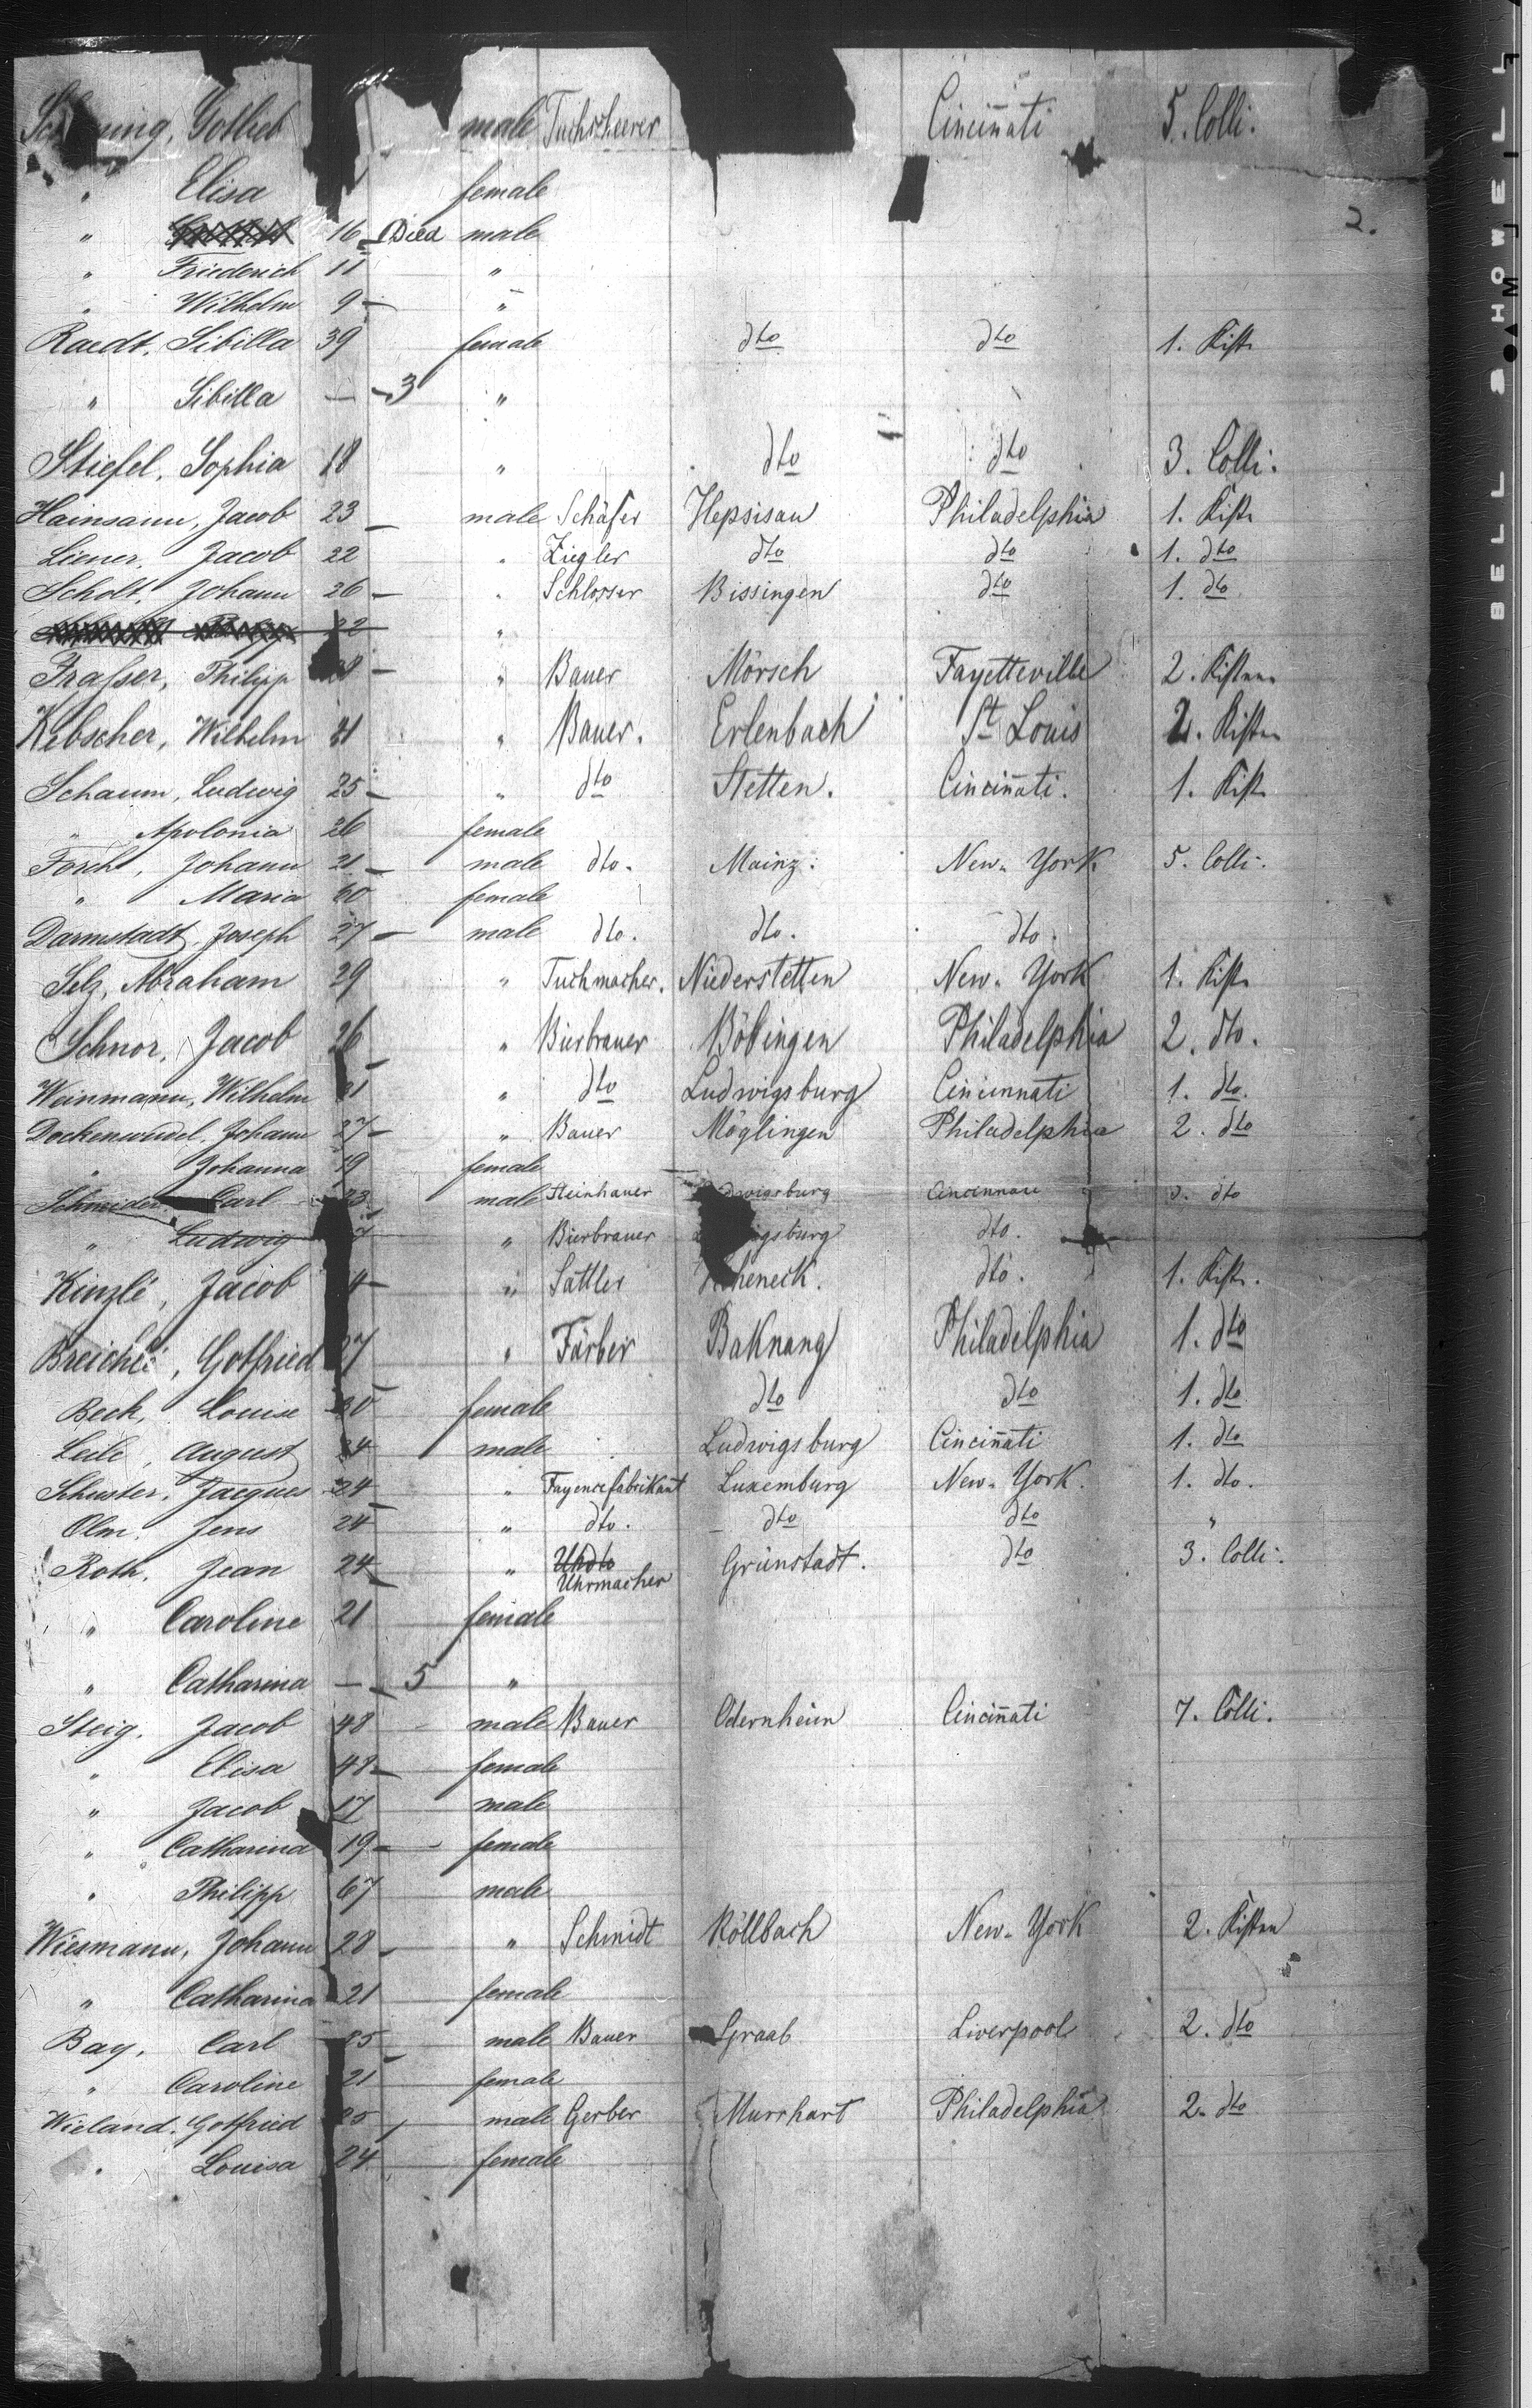 Gotlieb male Tuchscheerer Cincinnati 5. Colli.
" Elisa female
2.
" 16 Died male
" Friederich 11 "
" Wilhelm 9 "
Raedt, Sibilla 39 female dto dto 1. Kiste
" Sibilla — 3 "
Stiefel, Sophia 18 " dto dto 3. Colli.
Hainsann, Jacob 23 male Schäfer Hepsisau Philadelphia 1. Kiste
Liener, Jacob 22 " Ziegler dto dto 1. dto
Scholt, Johann 26 " Schlosser Bissingen dto 1. dto
22 "
Frasser, Philipp " Bauer Mörsch Fayetteville 2. Kisten
Kebscher, Wilhelm " Bauer. Erlenbach St Louis 2. Kisten
Schaum, Ludwig 25 " dto Stetten. Cincinnati. 1. Kiste
" Apolonia 26 female
Forch, Johann 21 male dto. Mainz. New-York 5. Colli.
" Maria 60 female
Darmstadt, Joseph 27 male dto. dto. dto.
Selz, Abraham 29 " Tuchmacher. Niederstetten New-York 1. Kiste
Schnor, Jacob 26 " Bierbrauer Böbingen Philadelphia 2. dto.
Weinmann, Wilhelm " dto Ludwigsburg Cincinnati 1. dto.
Dockenwadel, Johann 27 " Bauer Möglingen Philadelphia 2. dto
" Johanna 19 female
Schneider Carl 23 male Steinhauer Cincinnati dto
" Ludwig " Bierbrauer dto.
Kinzlé, Jacob " Sattler dto. 1. Kiste.
Breichlé, Gotfried 27 " Färber Baknang Philadelphia 1. dto
Beck, Louise female dto dto 1. dto
August 24 male Ludwigsburg Cincinnati 1. dto
Schuster, Jacques 24 " Fayencefabrikant Luxemburg New-York. 1. dto.
Olm, Jens 24 " dto. dto dto "
Roth, Jean 24 " Uhrmacher Grünstadt. dto 3. Colli.
" Caroline 21 female
" Catharina — 5 "
Steig, Jacob 48 male Bauer Odernheim Cincinnati 7. Colli.
" Elisa 48 female
" Jacob 17 male
" Catharina 19 female
" Philipp 67 male
Wiesmann, Johann 28 " Schmidt Röllbach New-York 2. Kisten
" Catharina 21 female
Bay, Carl 25 male Bauer Graab Liverpool 2. dto
" Caroline 21 female
Wieland, Gotfried 25 male Gerber Murrhart Philadelphia 2. dto
" Louisa 24 female
BELL & HOWELL